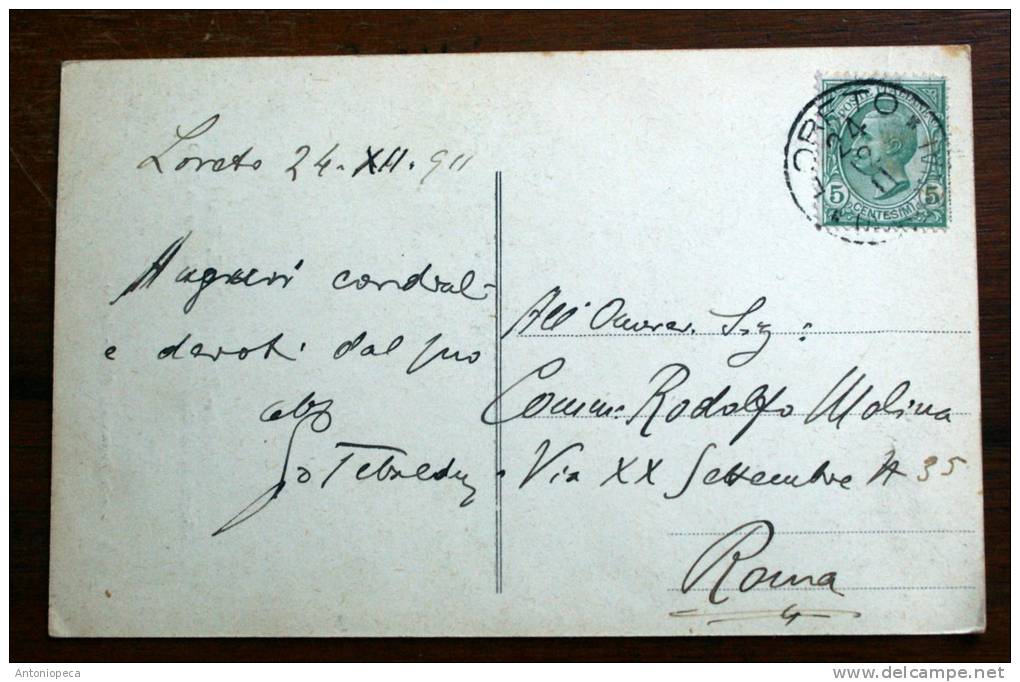 Loreto 24. XII. 911
Auguri cordiali
e devoti dal suo
All' Onorev. Sig:
Comm. Rodolfo Molina
Via XX Settembre N 35
Roma
LORETO
24
12
11
POSTE ITALIANE
5 CENTESIMI 5
Antoniopeca
delcampe.net